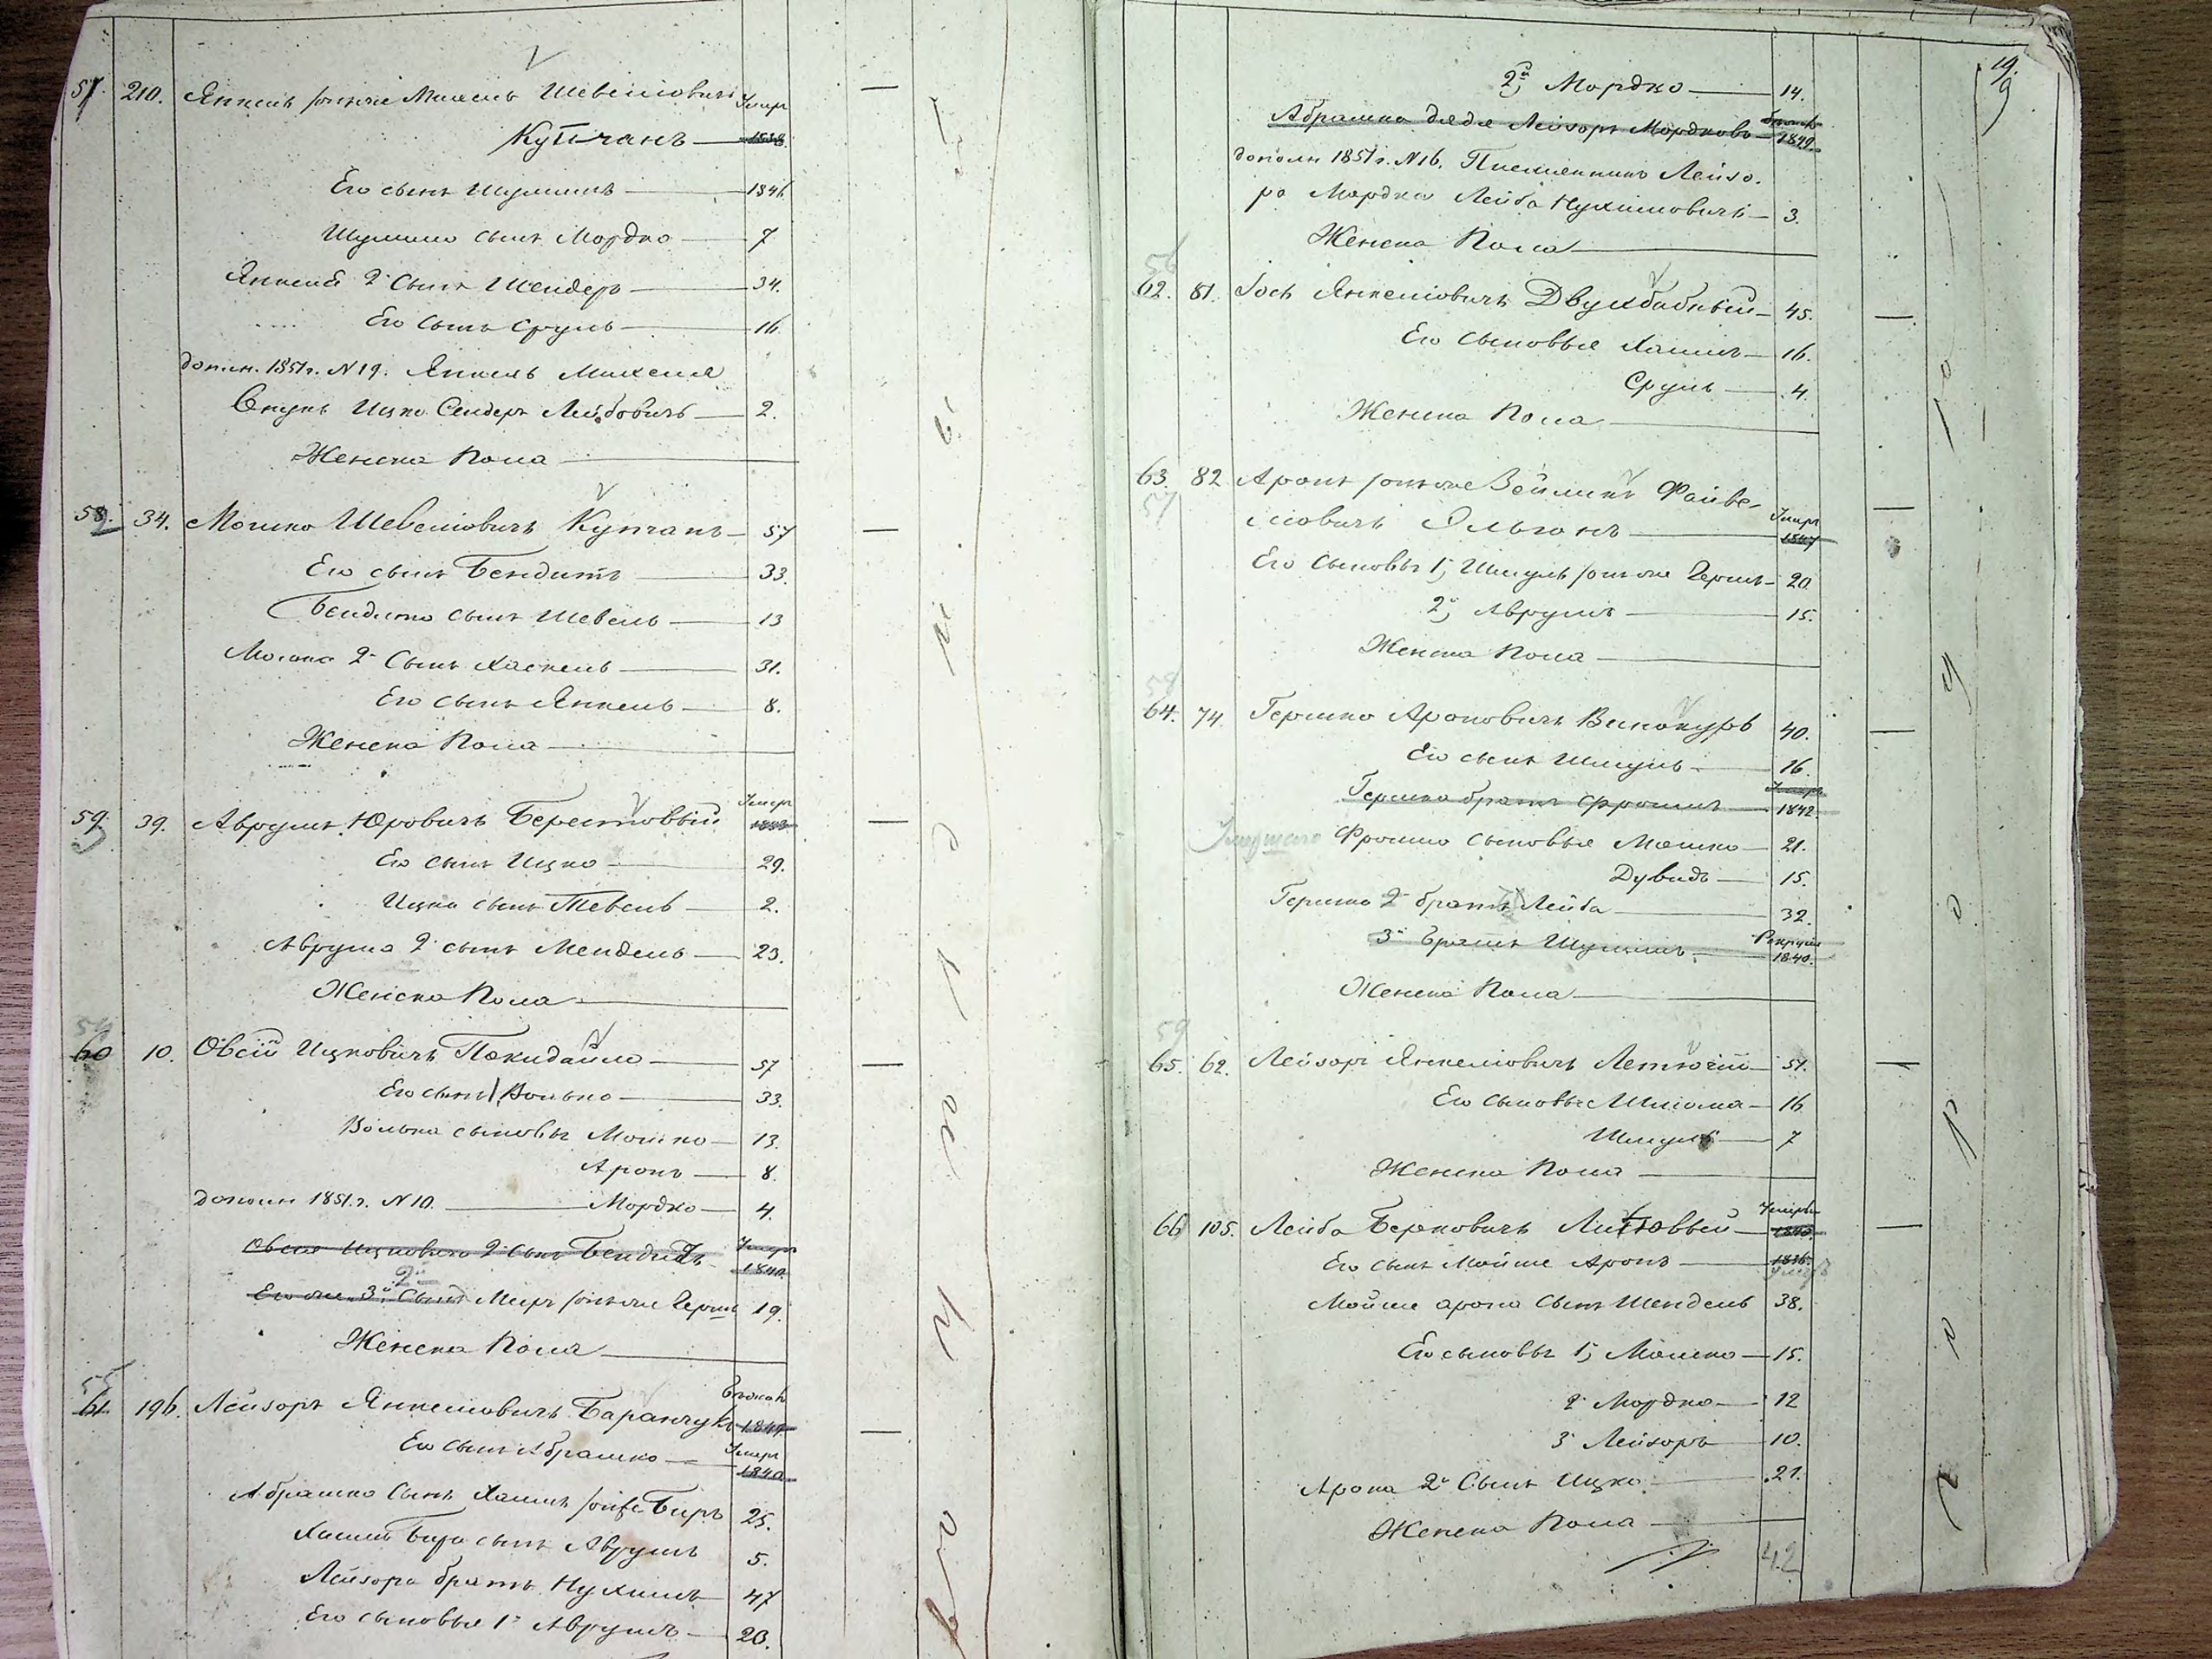 57. 210. Янкель онже Михель Шевелiовичъ Умеръ
Купчанъ 1838.
Его сынъ Шулимъ 1846.
Шулима сынъ Мордко 7
Янкеля 2й Сынъ Шендеръ 34.
Его Сынъ Сруль 16.
дополн. 1851 г. N 19. Янкель Михеля
Внукъ Ицко Сендеръ Лейбовичъ 2.
Женска Пола
58. 34. Мошко Шевелiовичъ Купчанъ 57
Его сынъ Бендитъ 33.
Бендита сынъ Шевель 13
Мошка 2й Сынъ Хаскель 31.
Его сынъ Янкель 8.
Женска Пола
59. 39. Аврумъ Юровичъ Берестовый Умеръ
Его сынъ Ицко 29.
Ицка сынъ Тевель 2.
Аврума 2й сынъ Мендель 23.
Женска Пола
60 10. Овсiй Ицковичъ Покидайло 57
Его сынъ Волько 33.
Волька сыновья Мошко 13.
Аронъ 8.
дополн 1851. г. N 10. Мордко 4.
Овсiя Ицковича 2й Сынъ Бендитъ Умеръ
1840.
2й
Его же 3й Сынъ Меиръ онже Герш 19.
Женска Пола
55
61. 196. Лейзоръ Янкелiовичъ Баранчукъ Бежалъ 1849.
Его сынъ Абрашко Умеръ
1840.
Абрашка Сынъ Хаимъ онже Биръ 25.
Хаимъ Бира сынъ Аврумъ 5.
Лейзора братъ Нухимъ 47
Его сыновья 1й Аврумъ 20.
19.
2й Мордко 14.
Абрашка дядя Лейзоръ Мордковъ 1849.
дополн 1851 г. N 16. Племянникъ Лейзо-
ра Мордка Лейба Нухимовичъ 3.
Женска Пола
56
62. 81. Iось Янкелiовичъ Двухбабный 45.
Его Сыновья Хаимъ 16.
Сруль 4.
Женска Пола
63. 82 Аронъ онже Зейликъ Файве-
57 лiовичъ Ользонъ Умеръ
1847
Его Сыновья 1й Шмуль онже Герш 20
2й Аврумъ 15.
Женска Пола
58
64. 74. Гершко Ароновичъ Винокуръ 40.
Его сынъ Шмуль 16.
Гершка братъ Фроимъ Умеръ
1842.
Умершаго Фроима сыновья Мошко 21.
Дувидъ 15.
Гершка 2й братъ Лейба 32.
3й братъ Шулимъ Рекрутъ
1840.
Женска Пола
59
65. 62. Лейзоръ Янкелiовичъ Летючiй 51.
Его сыновья Шлiома 16
Шмуль 7
Женска Пола
66 105. Лейба Берковичъ Литовый Умеръ
Его сынъ Мойше Аронъ 1836.
Мойше арона сынъ Шендель 38.
Его сыновья 1й Мошко 15.
2й Мордко 12
3й Лейзоръ 10.
Арона 2й Сынъ Ицко 21.
Женска Пола
42